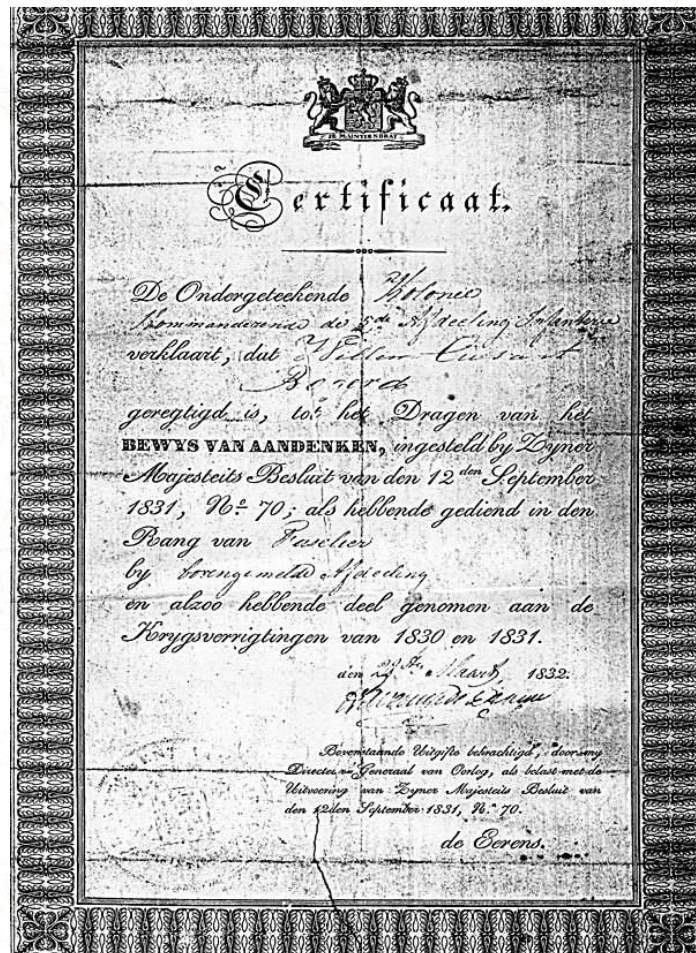 JE MAINTIENDRAI
Certificaat.
De Ondergeteekende Kolonel
Kommanderende de 5de Afdeeling Infanterie
verklaart, dat Willem
geregtigd is, tot het Dragen van het
BEWYS VAN AANDENKEN, ingesteld by Zyner
Majesteits Besluit van den 12den September
1831, No. 70; als hebbende gediend in den
Rang van Fuselier
by bovengemelde Afdeeling
en alzoo hebbende deel genomen aan de
Krygsverrigtingen van 1830 en 1831.
den Maart, 1832.
Bovenstaande Uitgifte bekrachtigd, door my
Directeur Generaal van Oorlog, als belast met de
Uitvoering van Zyner Majesteits Besluit van
den 12den September 1831, No. 70.
de Eerens.